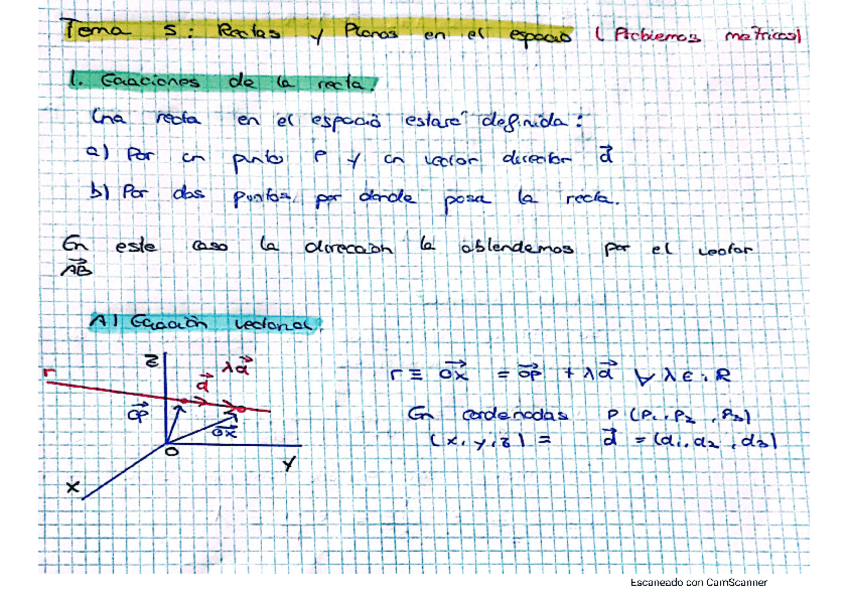 Tema 5: Rectas y Planos en el espacio (Problemas metricos)
1. Ecuaciones de la recta.
Una recta en el espacio estará definida:
a) Por un punto P y un vector director d⃗
b) Por dos puntos, por donde pasa la recta.
En este caso la direccion la obtendemos por el vector
AB⃗
A) Ecuación vectorial.
z
λd⃗
r
d⃗
OP⃗
OX⃗
O
Y
X
r ≡ OX⃗ = OP⃗ + λd⃗ ∀ λ ∈ R
En cordenadas P (P₁, P₂, P₃)
(x, y, z) = d⃗ = (d₁, d₂, d₃)
Escaneado con CamScanner